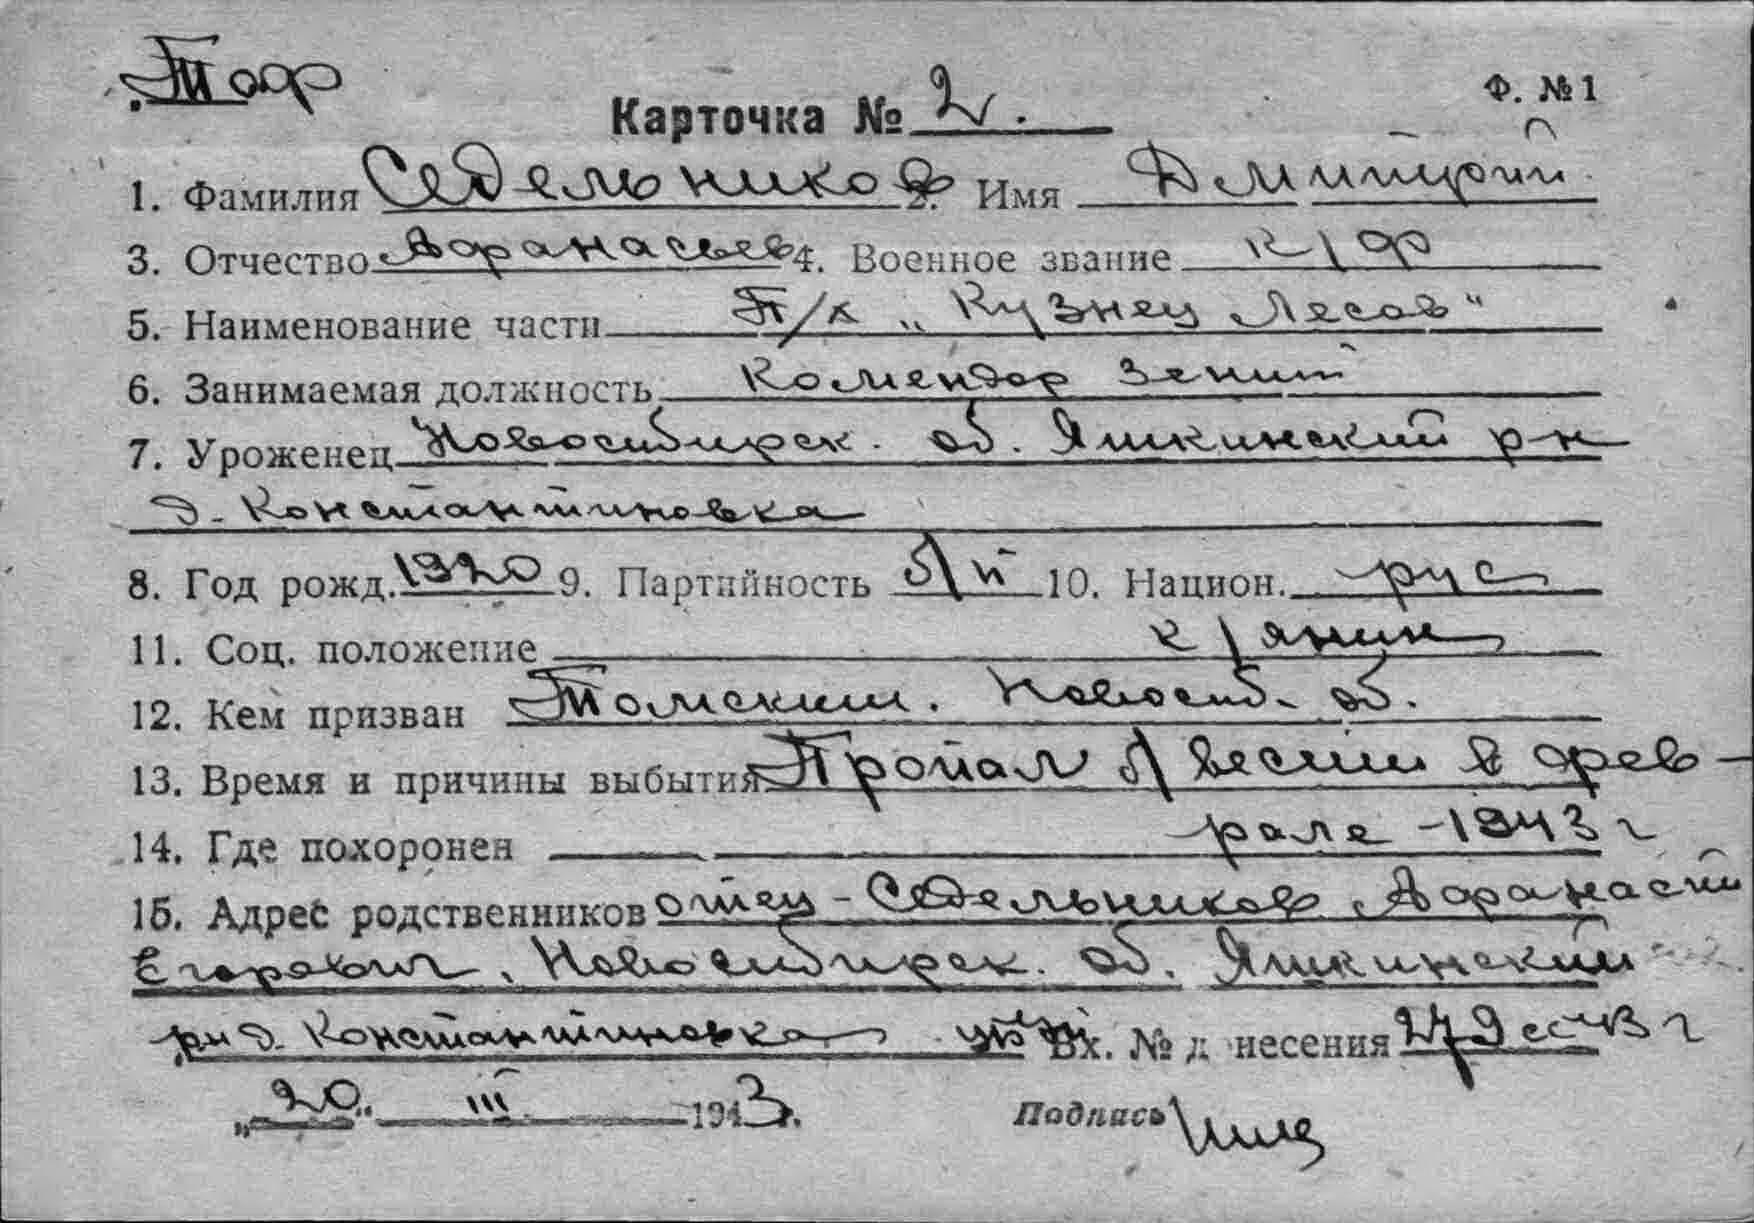 Тоф
Ф. №1
Карточка № 2.
1. Фамилия Седельников 2. Имя Дмитрий
3. Отчество Афанасьев 4. Военное звание к/ф
5. Наименование части П/х „Кузнец Лесов"
6. Занимаемая должность Комендор зенит
7. Уроженец Новосибирск. об. Яшкинский р-н
д. Константиновка
8. Год рожд. 1920 9. Партийность б/п 10. Национ. рус
11. Соц. положение к/янин
12. Кем призван Томским. Новосиб. об.
13. Время и причины выбытия Пропал б/вести в фев-
14. Где похоронен рале - 1943 г
15. Адрес родственников отец - Седельников Афанасий
Егорович, Новосибирск. об. Яшкинский
рн д. Константиновка Вх. № д несения 27 43 г
„20" III 1943г. Подпись